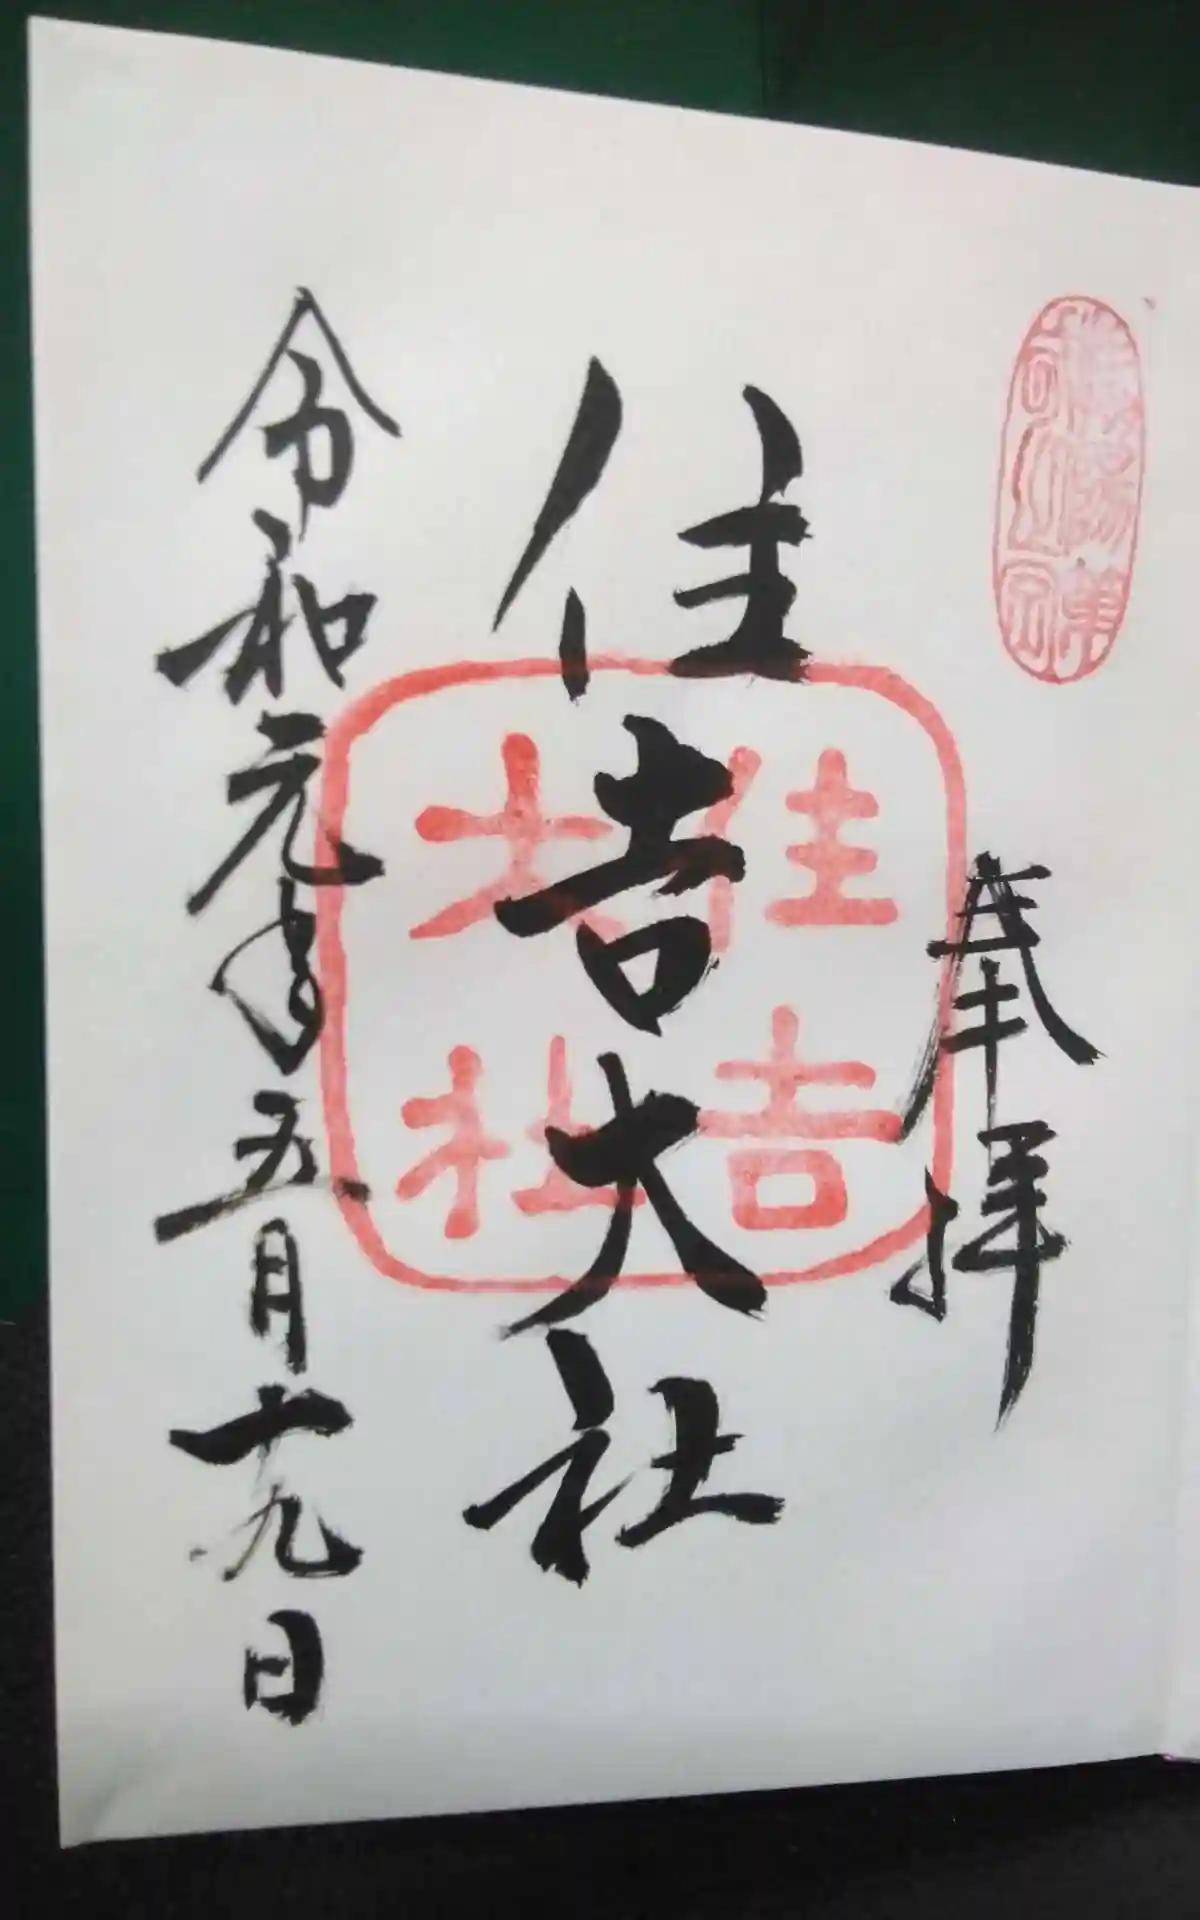 奉拝
住吉大社
住吉
大社
令和元年五月十九日